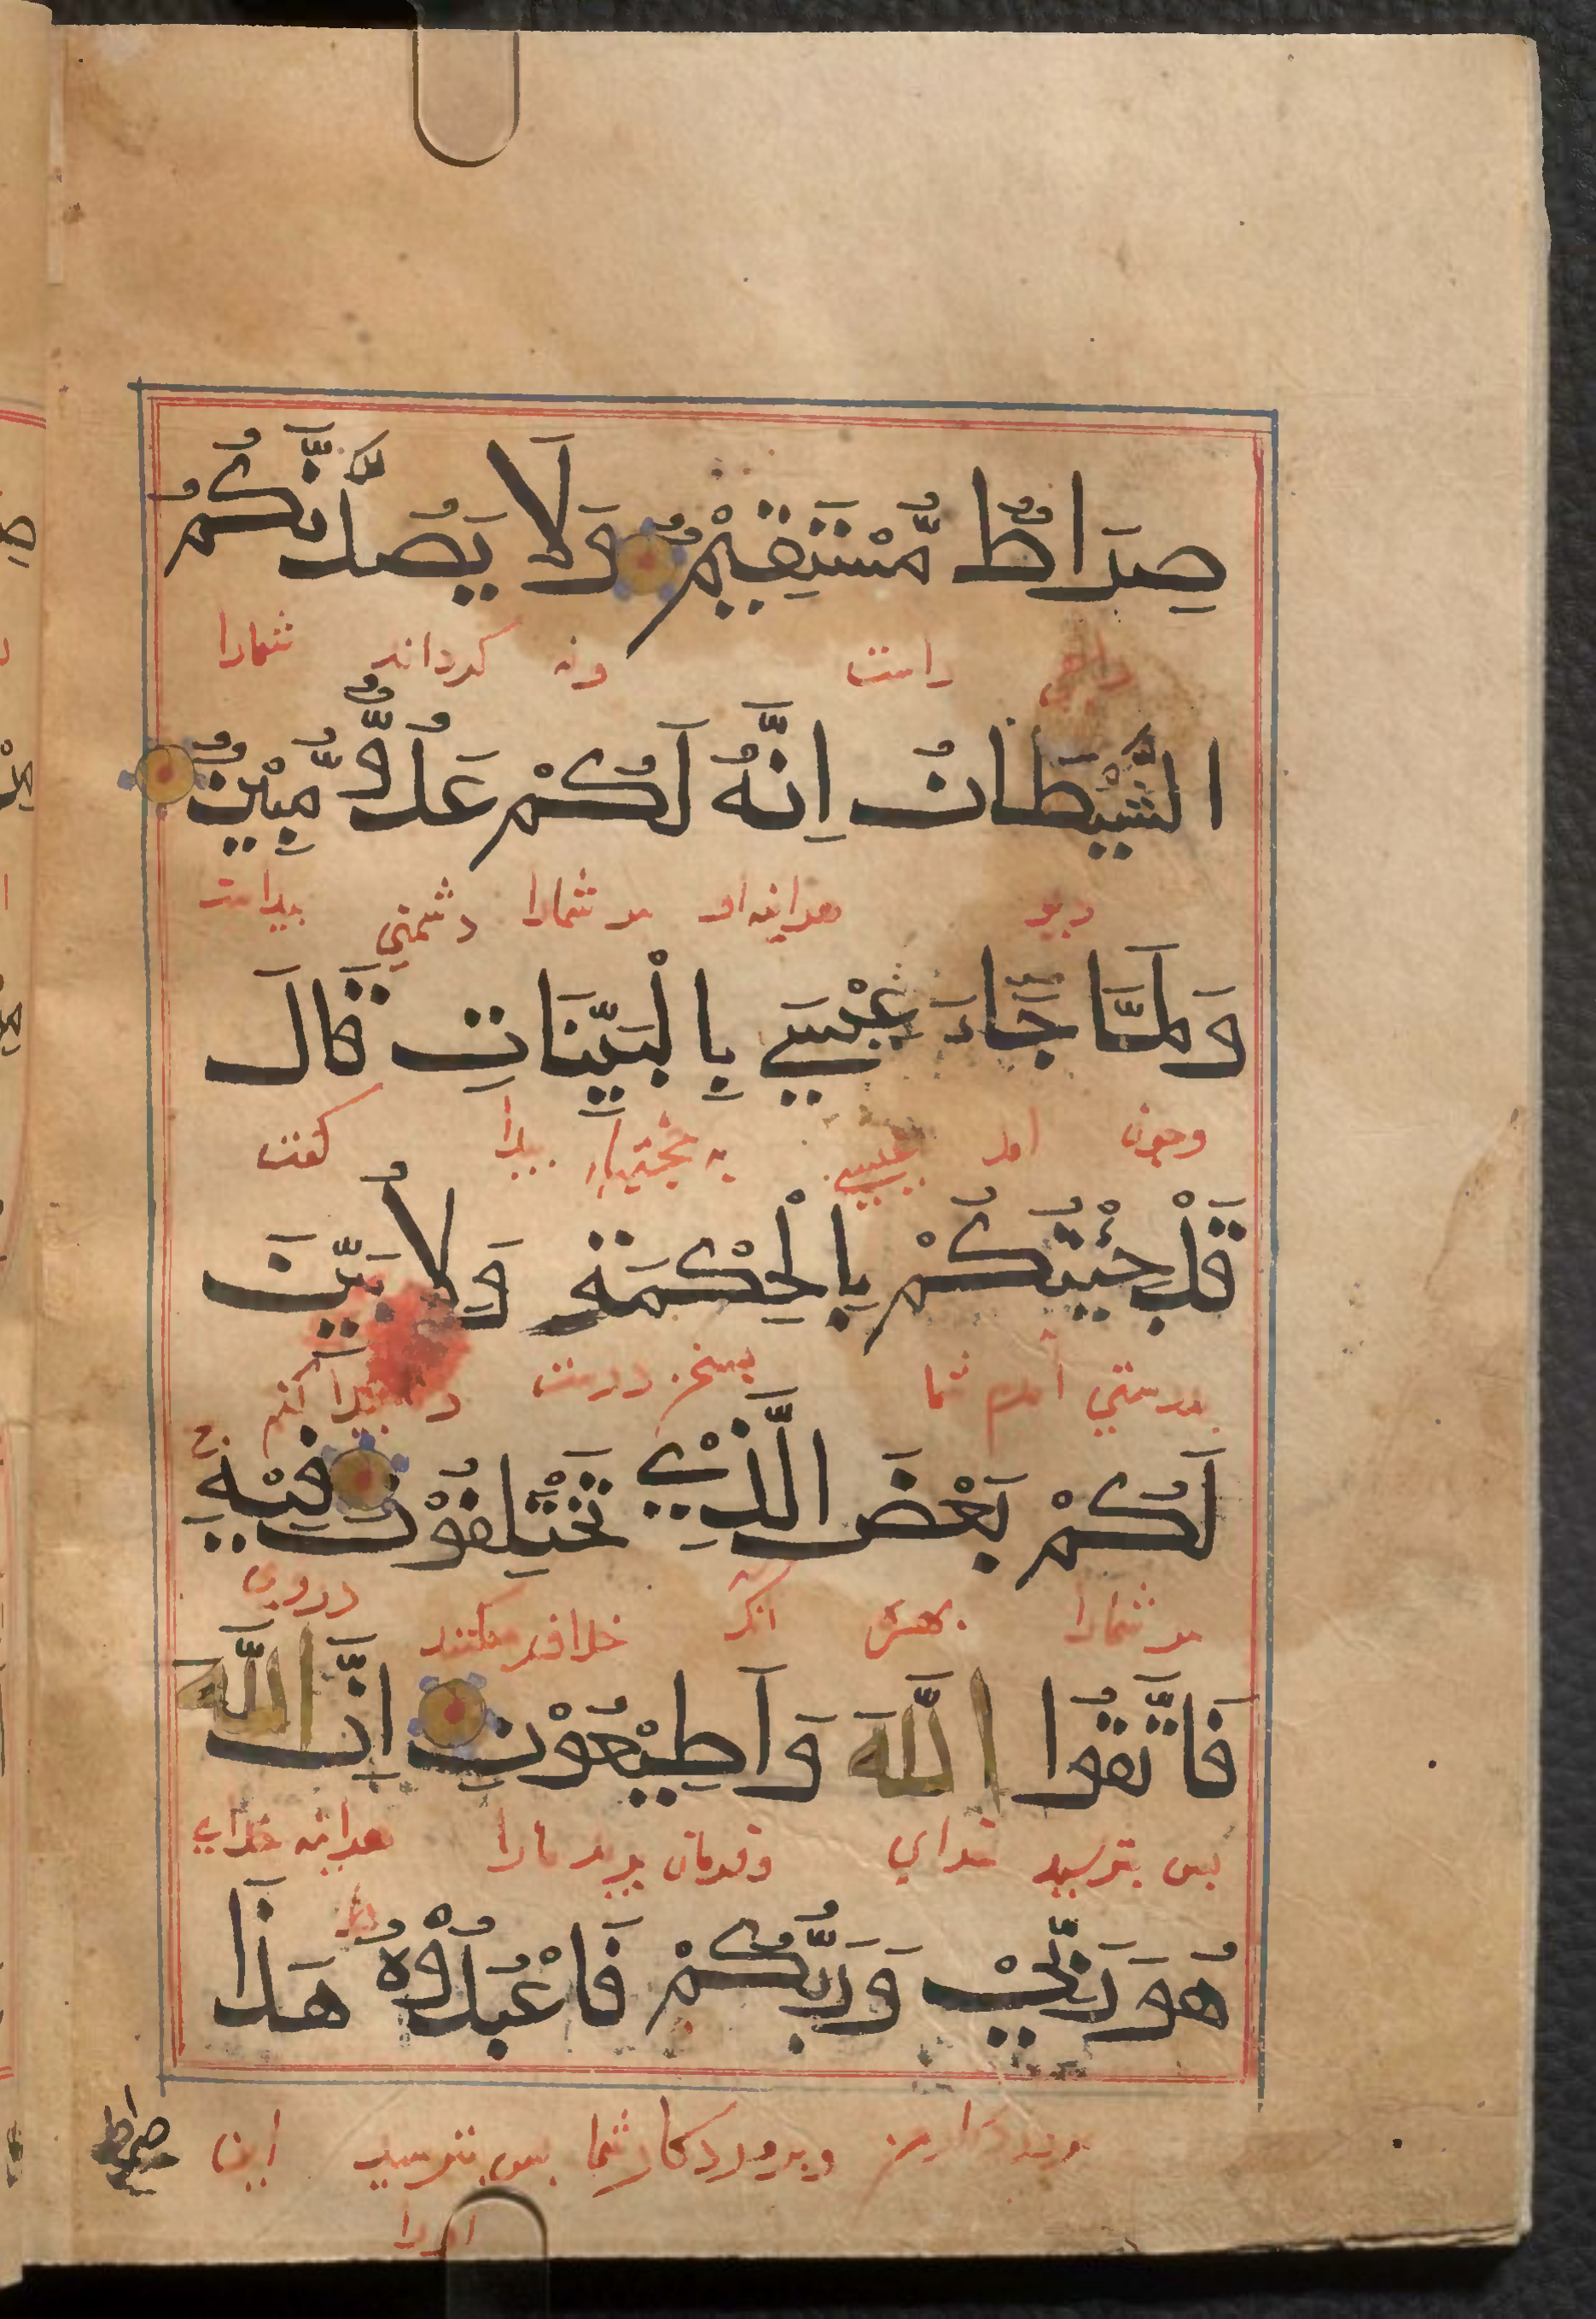 صِرَاطٌ مُّسْتَقِيْمٌ وَلَا يَصُدَّنَّكُمُ
راهی راست ونه كرداند شمارا
الشَّيْطَانُ اِنَّهُ لَكُمْ عَدُوٌّ مُّبِيْنٌ
ديو هراينه او مر شمارا دشمنی پيداست
وَلَمَّا جَاءَ عِيْسَي بِالْبَيِّنَاتِ قَالَ
وچون امد عيسی به پيدا كفت
قَدْ جِئْتُكُمْ بِالْحِكْمَةِ وَلِاُبَيِّنَ
بدرستي آمدم شما بسخن درست پيدا كنم
لَكُمْ بَعْضَ الَّذِيْ تَخْتَلِفُوْنَ فِيْهِ
مر شمارا انك خلاف ميكنند دروی
فَاتَّقُوا اللَّهَ وَاَطِيْعُوْنِ اِنَّ اللَّهَ
بس بترسيد خداي وفرمان بريد مارا هراينه خداي
هُوَ رَبِّيْ وَرَبُّكُمْ فَاعْبُدُوْهُ هَذَا
وبروردكار شما بس بترسيد اين
اورا
صراط